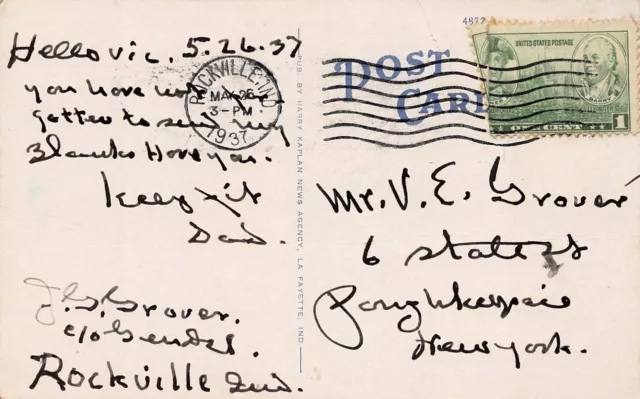 Hello Vic, 5.26.37
you have not for
gotten to send my
Blanks Have you.
Keep fit
Dad.
J.G. Grover.
c/o Gender.
Rockville Ind.
ROCKVILLE IND
MAY 26
3-PM
1937
PUB. BY HARRY KAPLAN NEWS AGENCY, LA FAYETTE, IND.
POST
CARD
UNITED STATES POSTAGE
BARRY
ONE CENT
1
Mr. V. E. Grover
6 State St
Poughkeepsie
New York.